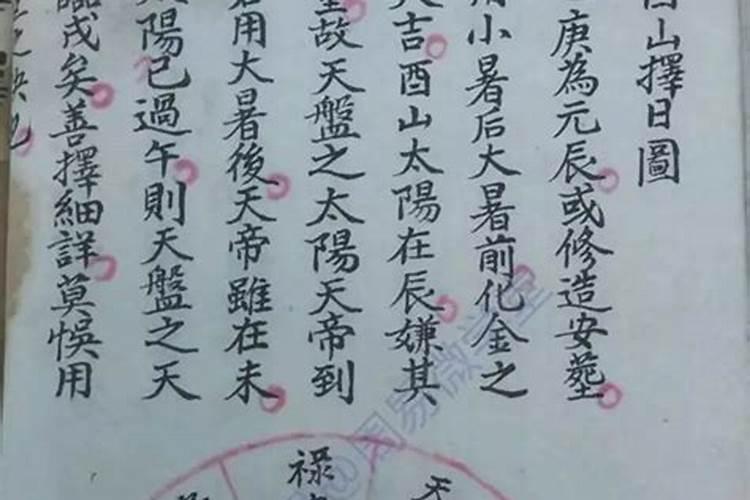 山擇日圖
庚為元辰或修造安塟
小暑后大暑前化金之
吉酉山太陽在辰嫌其
故天盤之太陽天帝到
用大暑後天帝雖在未
陽已過午則天盤之天
戌矣善擇細詳莫悞用
禄
天